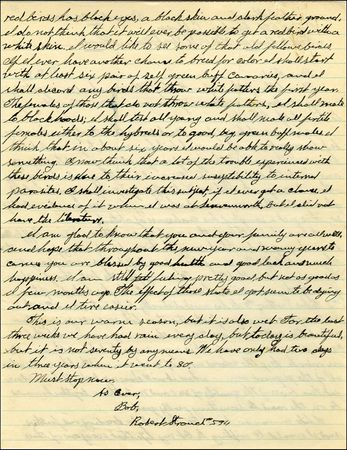 red birds has black eyes, a black skin and dark feather ground,
I do not think that it will ever be possible to get a red bird with a
white skin. I would like to see some of that old fellow
if I ever have another chance to breed for color I shall start
with at least six pair of self green buff canaries, and I
shall discard any birds that throw white the first year.
The females of those that do not throw white I shall mate
to black hoods, I shall test all young and shall mate all fertile
females either to the hybrids or to good big green buff males I
think that in about six years I would be able to really show
something. I now think that a lot of the trouble experienced with
these birds is due to their increased susceptibility to internal
parasites, I shall investigate this subject if I ever get a chance, I
had evidence of it when I was at Leavenworth but I did not
have the literature.
I am glad to know that you and your family are all well,
and hope that throughout the new year and many years to
come you are blessed by good health and good luck and much
happiness, I am still feeling pretty good but not as good as
a few months ago. The effect of those shots I got seem to be dying
out and I tire easier.
This is our warm season, but it is also wet. For the last
three weeks we have had rain every day, but today is beautiful,
but it is not seventy by any means. We have only had two days
in three years when it went to 80.
Must stop now,
As Ever,
Bob,
Robert Stroud #594